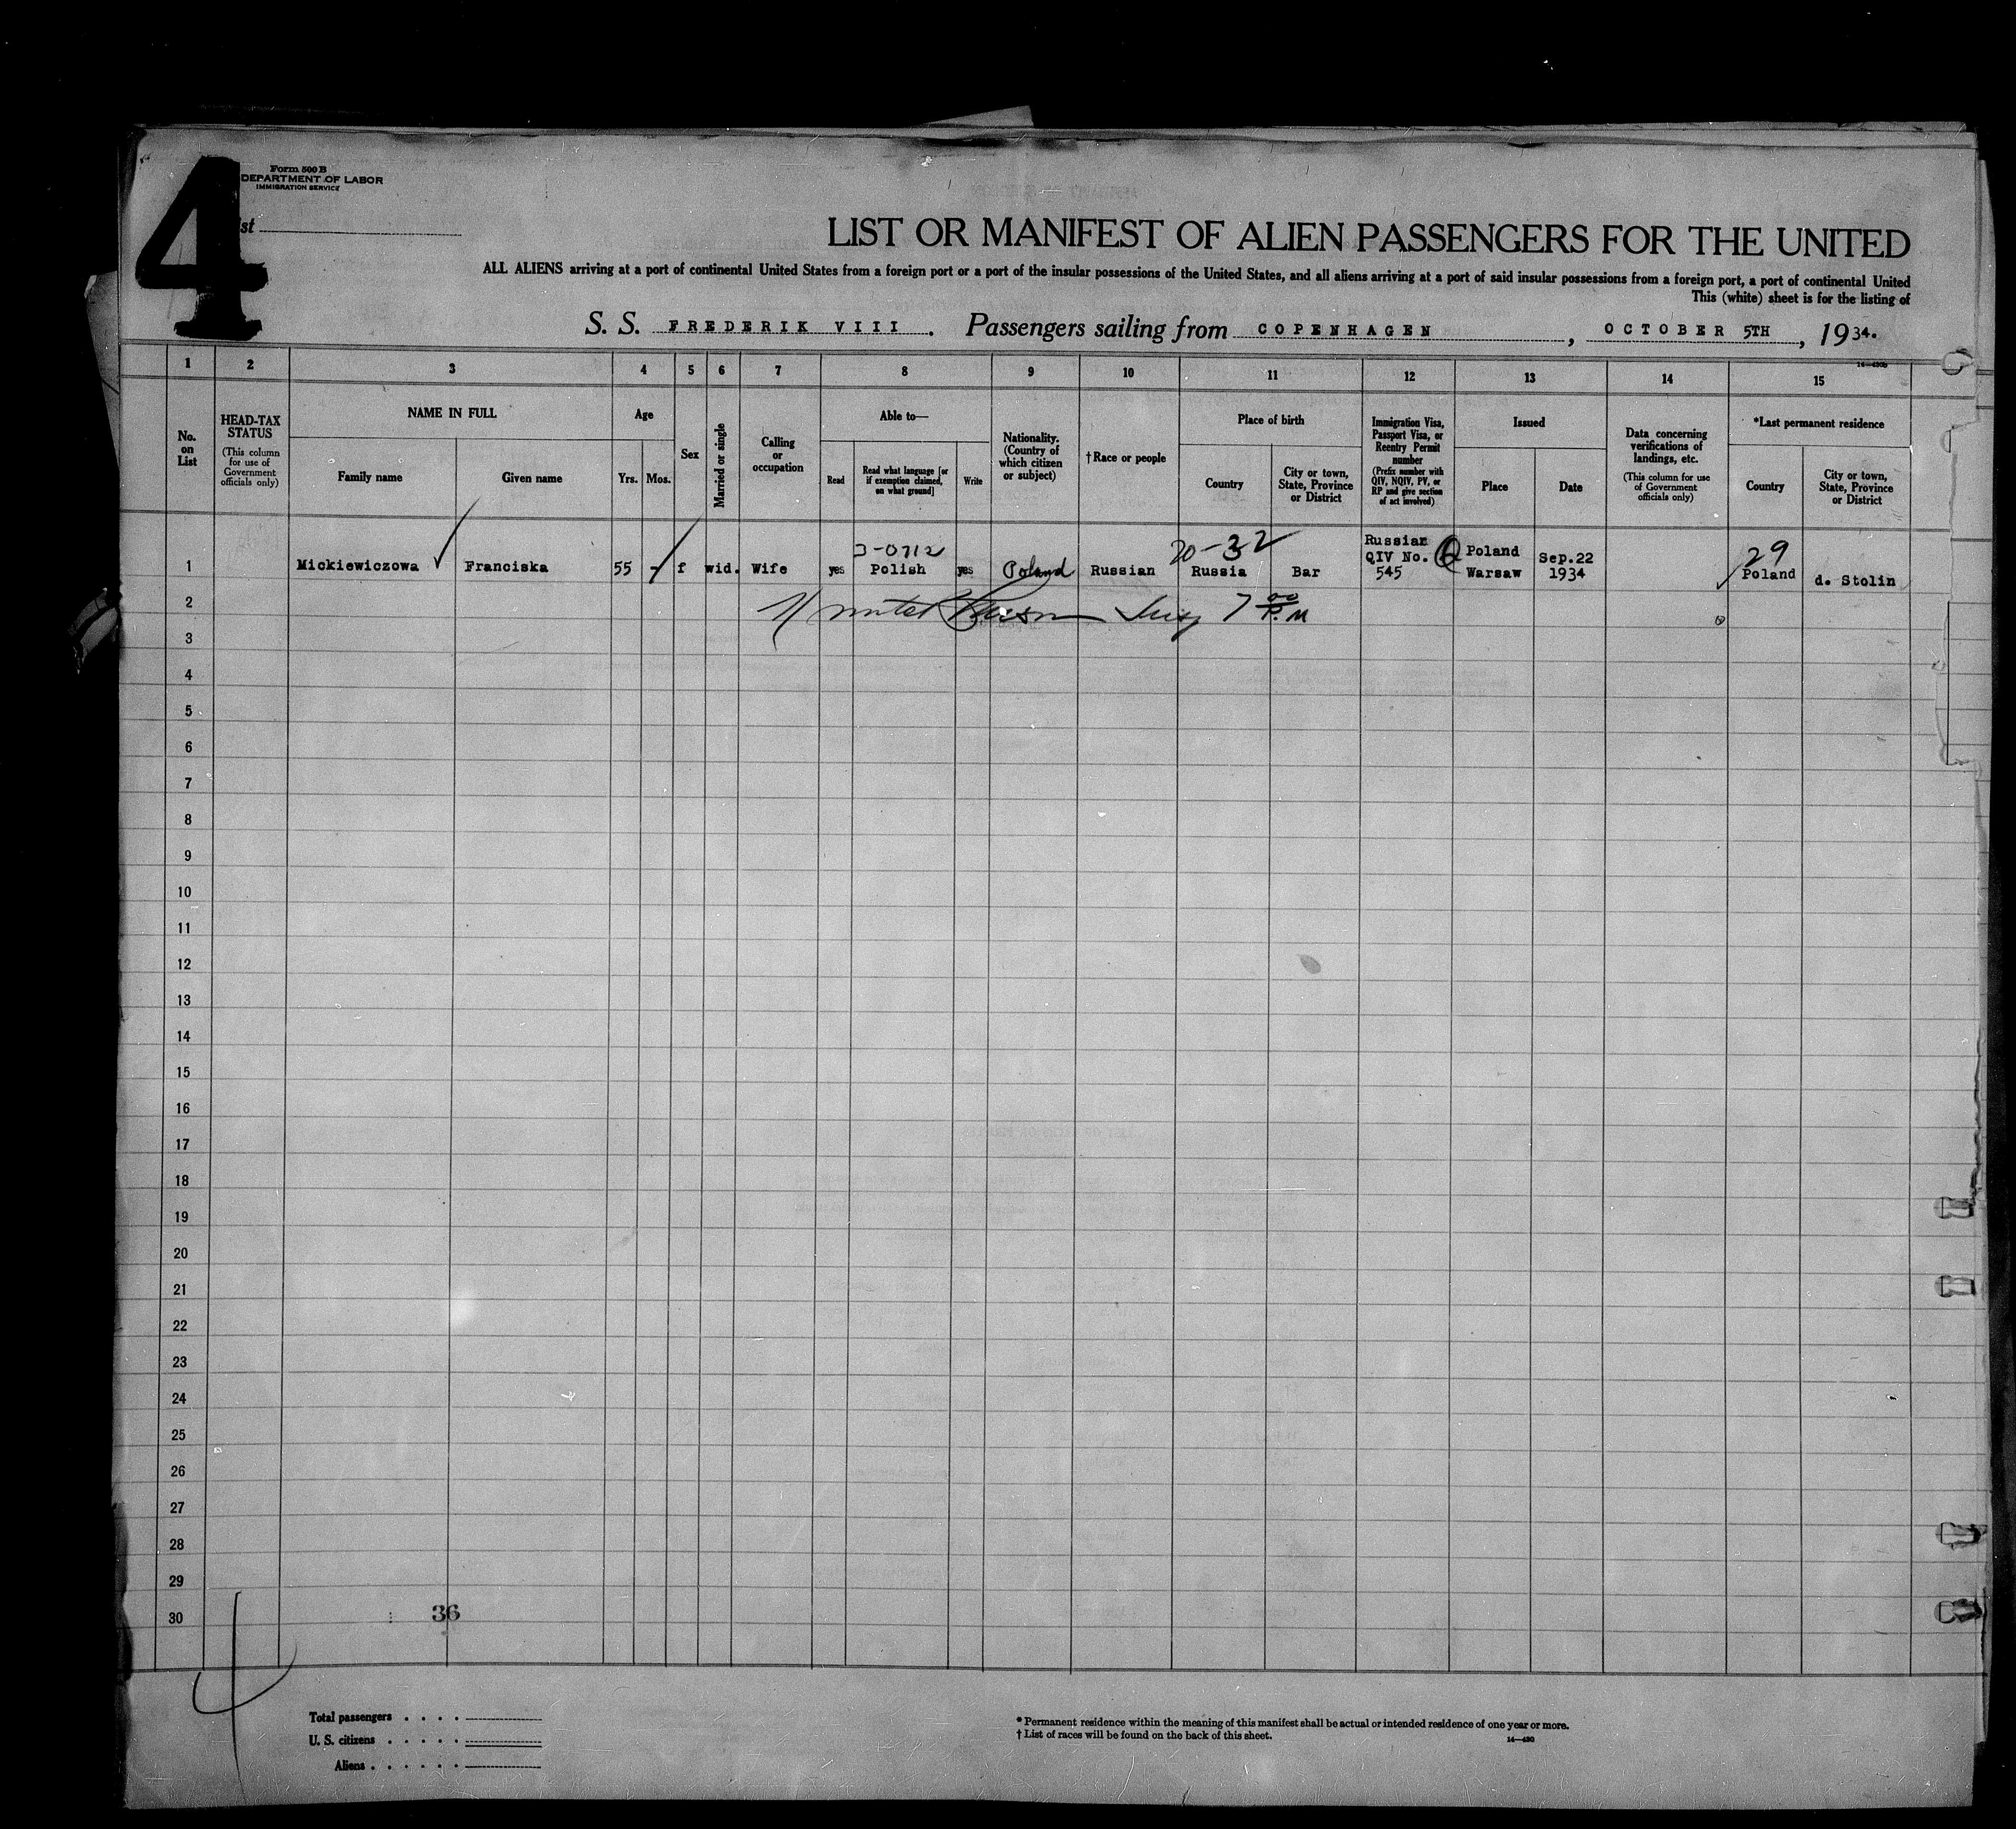 4
Form 500 B
DEPARTMENT OF LABOR
IMMIGRATION SERVICE
LIST OR MANIFEST OF ALIEN PASSENGERS FOR THE UNITED
ALL ALIENS arriving at a port of continental United States from a foreign port or a port of the insular possessions of the United States, and all aliens arriving at a port of said insular possessions from a foreign port, a port of continental United
This (white) sheet is for the listing of
S. S. FREDERIK VIII. Passengers sailing from COPENHAGEN, OCTOBER 5TH, 1934.
14—430b
1 2 3 4 5 6 7 8 9 10 11 12 13 14 15
No. on List
HEAD-TAX STATUS
(This column for use of Government officials only)
NAME IN FULL
Family name
Given name
Age
Yrs.
Mos.
Sex
Married or single
Calling or occupation
Able to—
Read
Read what language [or if exemption claimed, on what ground]
Write
Nationality. (Country of which citizen or subject)
†Race or people
Place of birth
Country
City or town, State, Province or District
Immigration Visa, Passport Visa, or Reentry Permit number
(Prefix number with QIV, NQIV, PV, or RP and give section of act involved)
Issued
Place
Date
Data concerning verifications of landings, etc.
(This column for use of Government officials only)
*Last permanent residence
Country
City or town, State, Province or District
3-0712 20-32 Russian Poland Sep.22 29
1 Mickiewiczowa Franciska 55 - f wid. Wife yes Polish yes Poland Russian Russia Bar QIV No. 545 Warsaw 1934 Poland d. Stolin
2
3
4
5
6
7
8
9
10
11
12
13
14
15
16
17
18
19
20
21
22
23
24
25
26
27
28
29
30
36
Total passengers
U. S. citizens
Aliens
* Permanent residence within the meaning of this manifest shall be actual or intended residence of one year or more.
† List of races will be found on the back of this sheet.
14—430